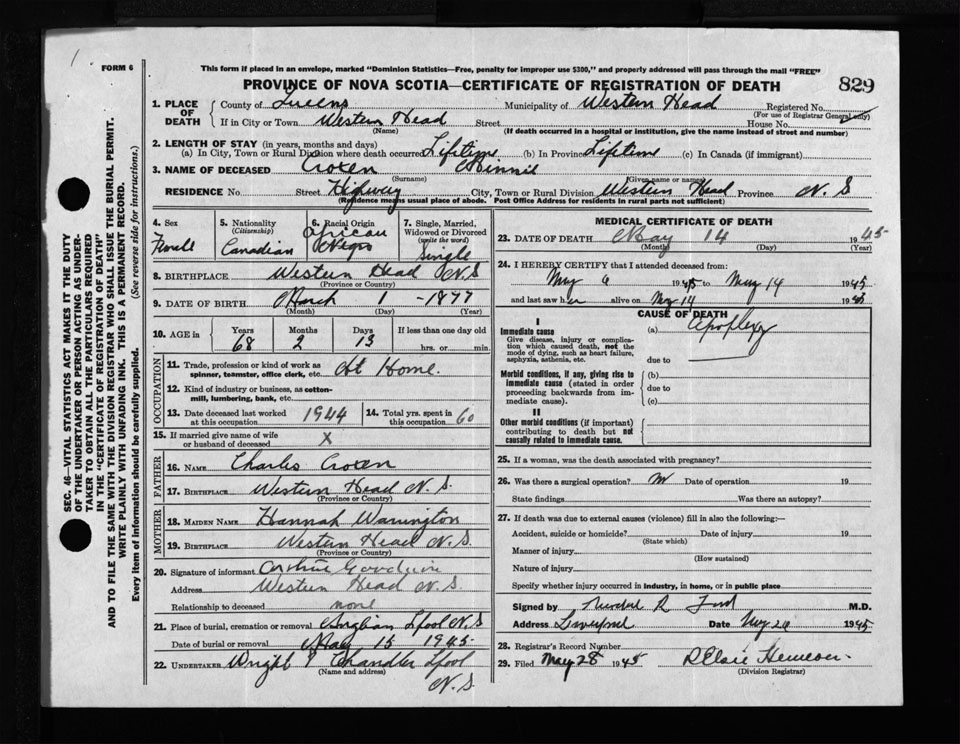 1
FORM 6
This form if placed in an envelope, marked "Dominion Statistics—Free, penalty for improper use $300," and properly addressed will pass through the mail "FREE"
PROVINCE OF NOVA SCOTIA—CERTIFICATE OF REGISTRATION OF DEATH 829
SEC. 46—VITAL STATISTICS ACT MAKES IT THE DUTY
OF THE UNDERTAKER OR PERSON ACTING AS UNDER-
TAKER TO OBTAIN ALL THE PARTICULARS REQUIRED
IN THE "CERTIFICATE OF REGISTRATION OF DEATH"
AND TO FILE THE SAME WITH THE DIVISION REGISTRAR WHO SHALL ISSUE THE BURIAL PERMIT.
WRITE PLAINLY WITH UNFADING INK. THIS IS A PERMANENT RECORD.
Every item of information should be carefully supplied. (See reverse side for instructions.)
1. PLACE OF DEATH { County of Queens Municipality of Western Head Registered No.
(For use of Registrar General only)
If in City or Town Western Head Street House No.
(Name) (If death occurred in a hospital or institution, give the name instead of street and number)
2. LENGTH OF STAY (in years, months and days)
(a) In City, Town or Rural Division where death occurred Lifetime (b) In Province Lifetime (c) In Canada (if immigrant)
3. NAME OF DECEASED Croxen Minnie
(Surname) (Given name or names)
RESIDENCE No. Street Highway City, Town or Rural Division Western Head Province N.S
(Residence means usual place of abode. Post Office Address for residents in rural parts not sufficient)
4. Sex 5. Nationality (Citizenship) 6. Racial Origin 7. Single, Married, Widowed or Divorced (write the word)
Female Canadian African Negro Single
8. BIRTHPLACE Western Head N.S
(Province or Country)
9. DATE OF BIRTH March 1 - 1877
(Month) (Day) (Year)
10. AGE in { Years Months Days If less than one day old
68 2 13 hrs. or min.
OCCUPATION
11. Trade, profession or kind of work as spinner, teamster, office clerk, etc. At Home.
12. Kind of industry or business, as cotton-mill, lumbering, bank, etc.
13. Date deceased last worked at this occupation 1944 14. Total yrs. spent in this occupation 60
15. If married give name of wife or husband of deceased X
FATHER
16. NAME Charles Croxen
17. BIRTHPLACE Western Head N.S.
(Province or Country)
MOTHER
18. MAIDEN NAME Hannah Warrington
19. BIRTHPLACE Western Head N.S.
(Province or Country)
20. Signature of informant Goodwin
Address Western Head N.S.
Relationship to deceased none
21. Place of burial, cremation or removal Anglican Lpool N.S
Date of burial or removal May 15 1945
22. UNDERTAKER Wright & Chandler Lpool
(Name and address) N.S.
MEDICAL CERTIFICATE OF DEATH
23. DATE OF DEATH May 14 1945
(Month) (Day) (Year)
24. I HEREBY CERTIFY that I attended deceased from:
May 6 1945 to May 14 1945
and last saw her alive on May 14 1945
CAUSE OF DEATH
I
Immediate cause (a) Apoplexy
Give disease, injury or complica-
tion which caused death, not the
mode of dying, such as heart failure,
asphyxia, asthenia, etc. due to
Morbid conditions, if any, giving rise to (b)
immediate cause (stated in order due to
proceeding backwards from im-
mediate cause). (c)
II
Other morbid conditions (if important)
contributing to death but not
causally related to immediate cause.
25. If a woman, was the death associated with pregnancy?
26. Was there a surgical operation? Date of operation 19
State findings Was there an autopsy?
27. If death was due to external causes (violence) fill in also the following:—
Accident, suicide or homicide? Date of injury 19
(State which)
Manner of injury
(How sustained)
Nature of injury
Specify whether injury occurred in industry, in home, or in public place
Signed by R Ford M.D.
Address Liverpool Date May 26 1945
28. Registrar's Record Number
29. Filed May 28 1945
(Division Registrar)